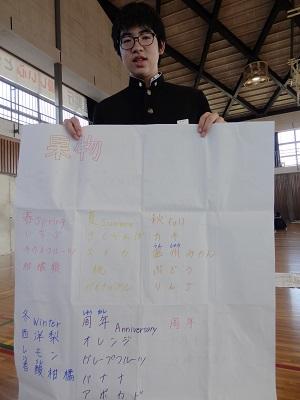 果物
春 Spring
いちご
キウイフルーツ
夏 Summer
さくらんぼ
スイカ
桃
パイナップル
秋 Fall
カキ
温州みかん
ぶどう
りんご
冬 Winter
西洋梨
レモン
周年 Anniversary
オレンジ
グレープフルーツ
バナナ
アボカド
周年